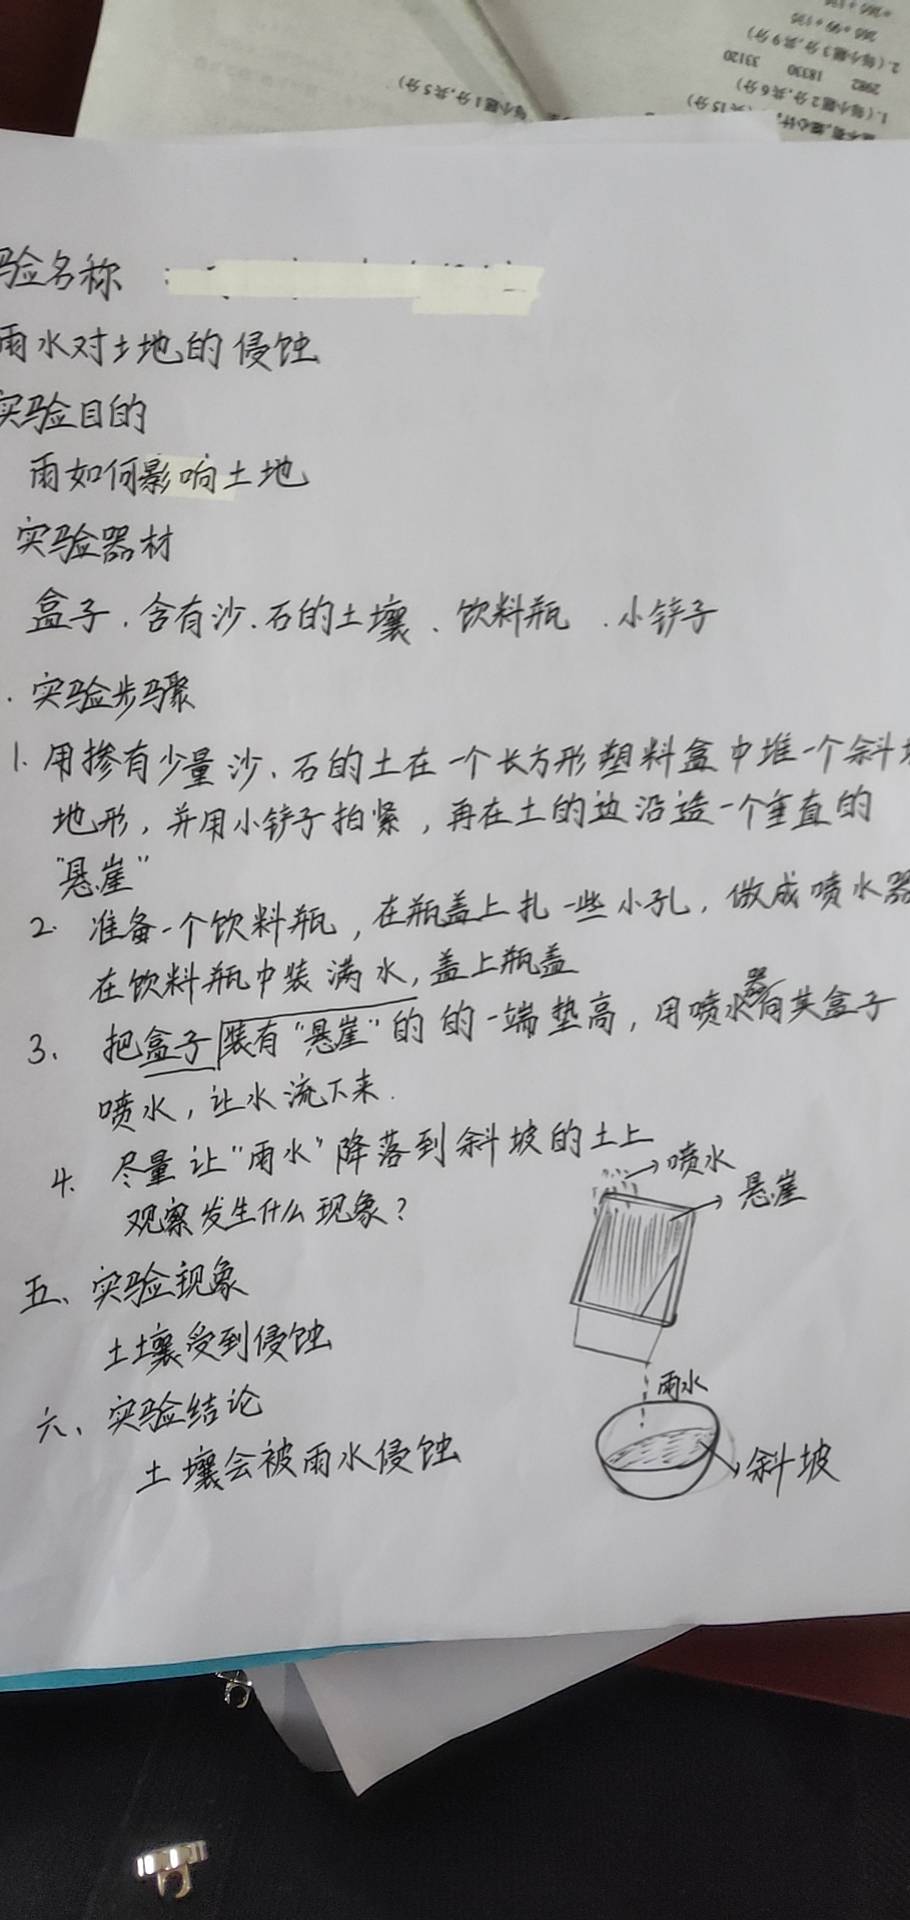 每小题1分,共5分)
共15分)
1.(每小题2分,共6分)
2982 18330 33120
2.(每小题3分,共9分)
265+99+135
验名称
雨水对土地的侵蚀
实验目的
雨如何影响土地
实验器材
盒子、含有沙、石的土壤、饮料瓶、小铲子
实验步骤
1. 用掺有少量沙、石的土在一个长方形塑料盒中堆一个斜
地形，并用小铲子拍紧，再在土的边沿造一个垂直的
“悬崖”
2. 准备一个饮料瓶，在瓶盖上扎一些小孔，做成喷水器
在饮料瓶中装满水，盖上瓶盖
3、把盒子装有“悬崖”的的一端垫高，用喷水器向其盒子
喷水，让水流下来.
4. 尽量让“雨水”降落到斜坡的土上
观察发生什么现象？
喷水
悬崖
五、实验现象
土壤受到侵蚀
六、实验结论
土壤会被雨水侵蚀
雨水
斜坡